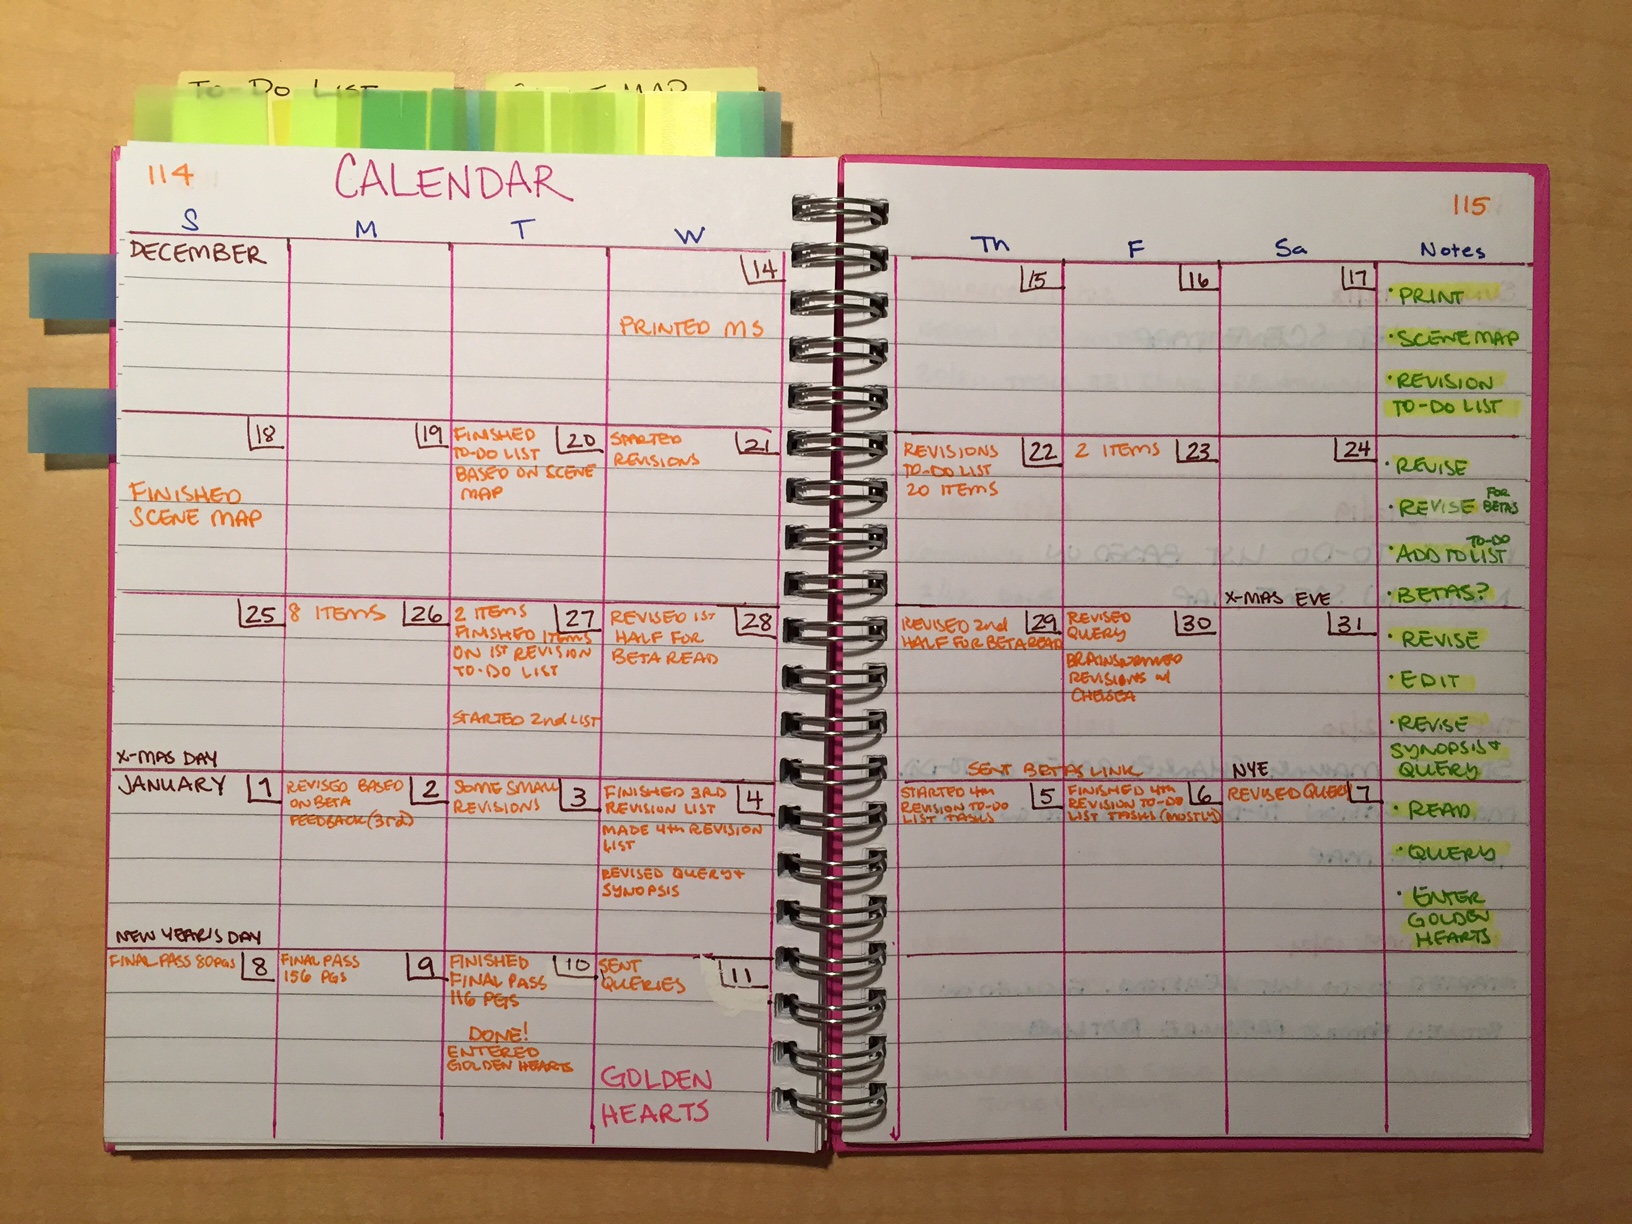 TO-DO LIST
MAP
114
CALENDAR
115
S M T W Th F Sa Notes
DECEMBER
14
PRINTED MS
15
16
17
· PRINT
· SCENE MAP
· REVISION
TO-DO LIST
18
FINISHED
SCENE MAP
19
20
FINISHED
TO-DO LIST
BASED ON SCENE
MAP
21
STARTED
REVISIONS
22
REVISIONS
TO-DO LIST
20 ITEMS
23
2 ITEMS
24
X-MAS EVE
· REVISE
· REVISE FOR BETAS
· ADD TO TO-DO LIST
· BETAS?
25
X-MAS DAY
26
8 ITEMS
27
2 ITEMS
FINISHED ITEMS
ON 1ST REVISION
TO-DO LIST
STARTED 2nd LIST
28
REVISED 1ST
HALF FOR
BETA READ
29
REVISED 2nd
HALF FOR BETA READ
30
REVISED
QUERY
BRAINSTORMED
REVISIONS w/
CHELSEA
SENT BETAS LINK
31
NYE
· REVISE
· EDIT
· REVISE
SYNOPSIS +
QUERY
JANUARY
1
NEW YEAR'S DAY
2
REVISED BASED
ON BETA
FEEDBACK (3rd)
3
SOME SMALL
REVISIONS
4
FINISHED 3RD
REVISION LIST
MADE 4th REVISION
LIST
REVISED QUERY +
SYNOPSIS
5
STARTED 4th
REVISION TO-DO
LIST TASKS
6
FINISHED 4th
REVISION TO-DO
LIST TASKS (MOSTLY)
7
REVISED QUERY
· READ
· QUERY
· ENTER
GOLDEN
HEARTS
8
FINAL PASS 80 PGS
9
FINAL PASS
156 PGS
10
FINISHED
FINAL PASS
116 PGS
DONE!
ENTERED
GOLDEN HEARTS
11
SENT
QUERIES
GOLDEN
HEARTS